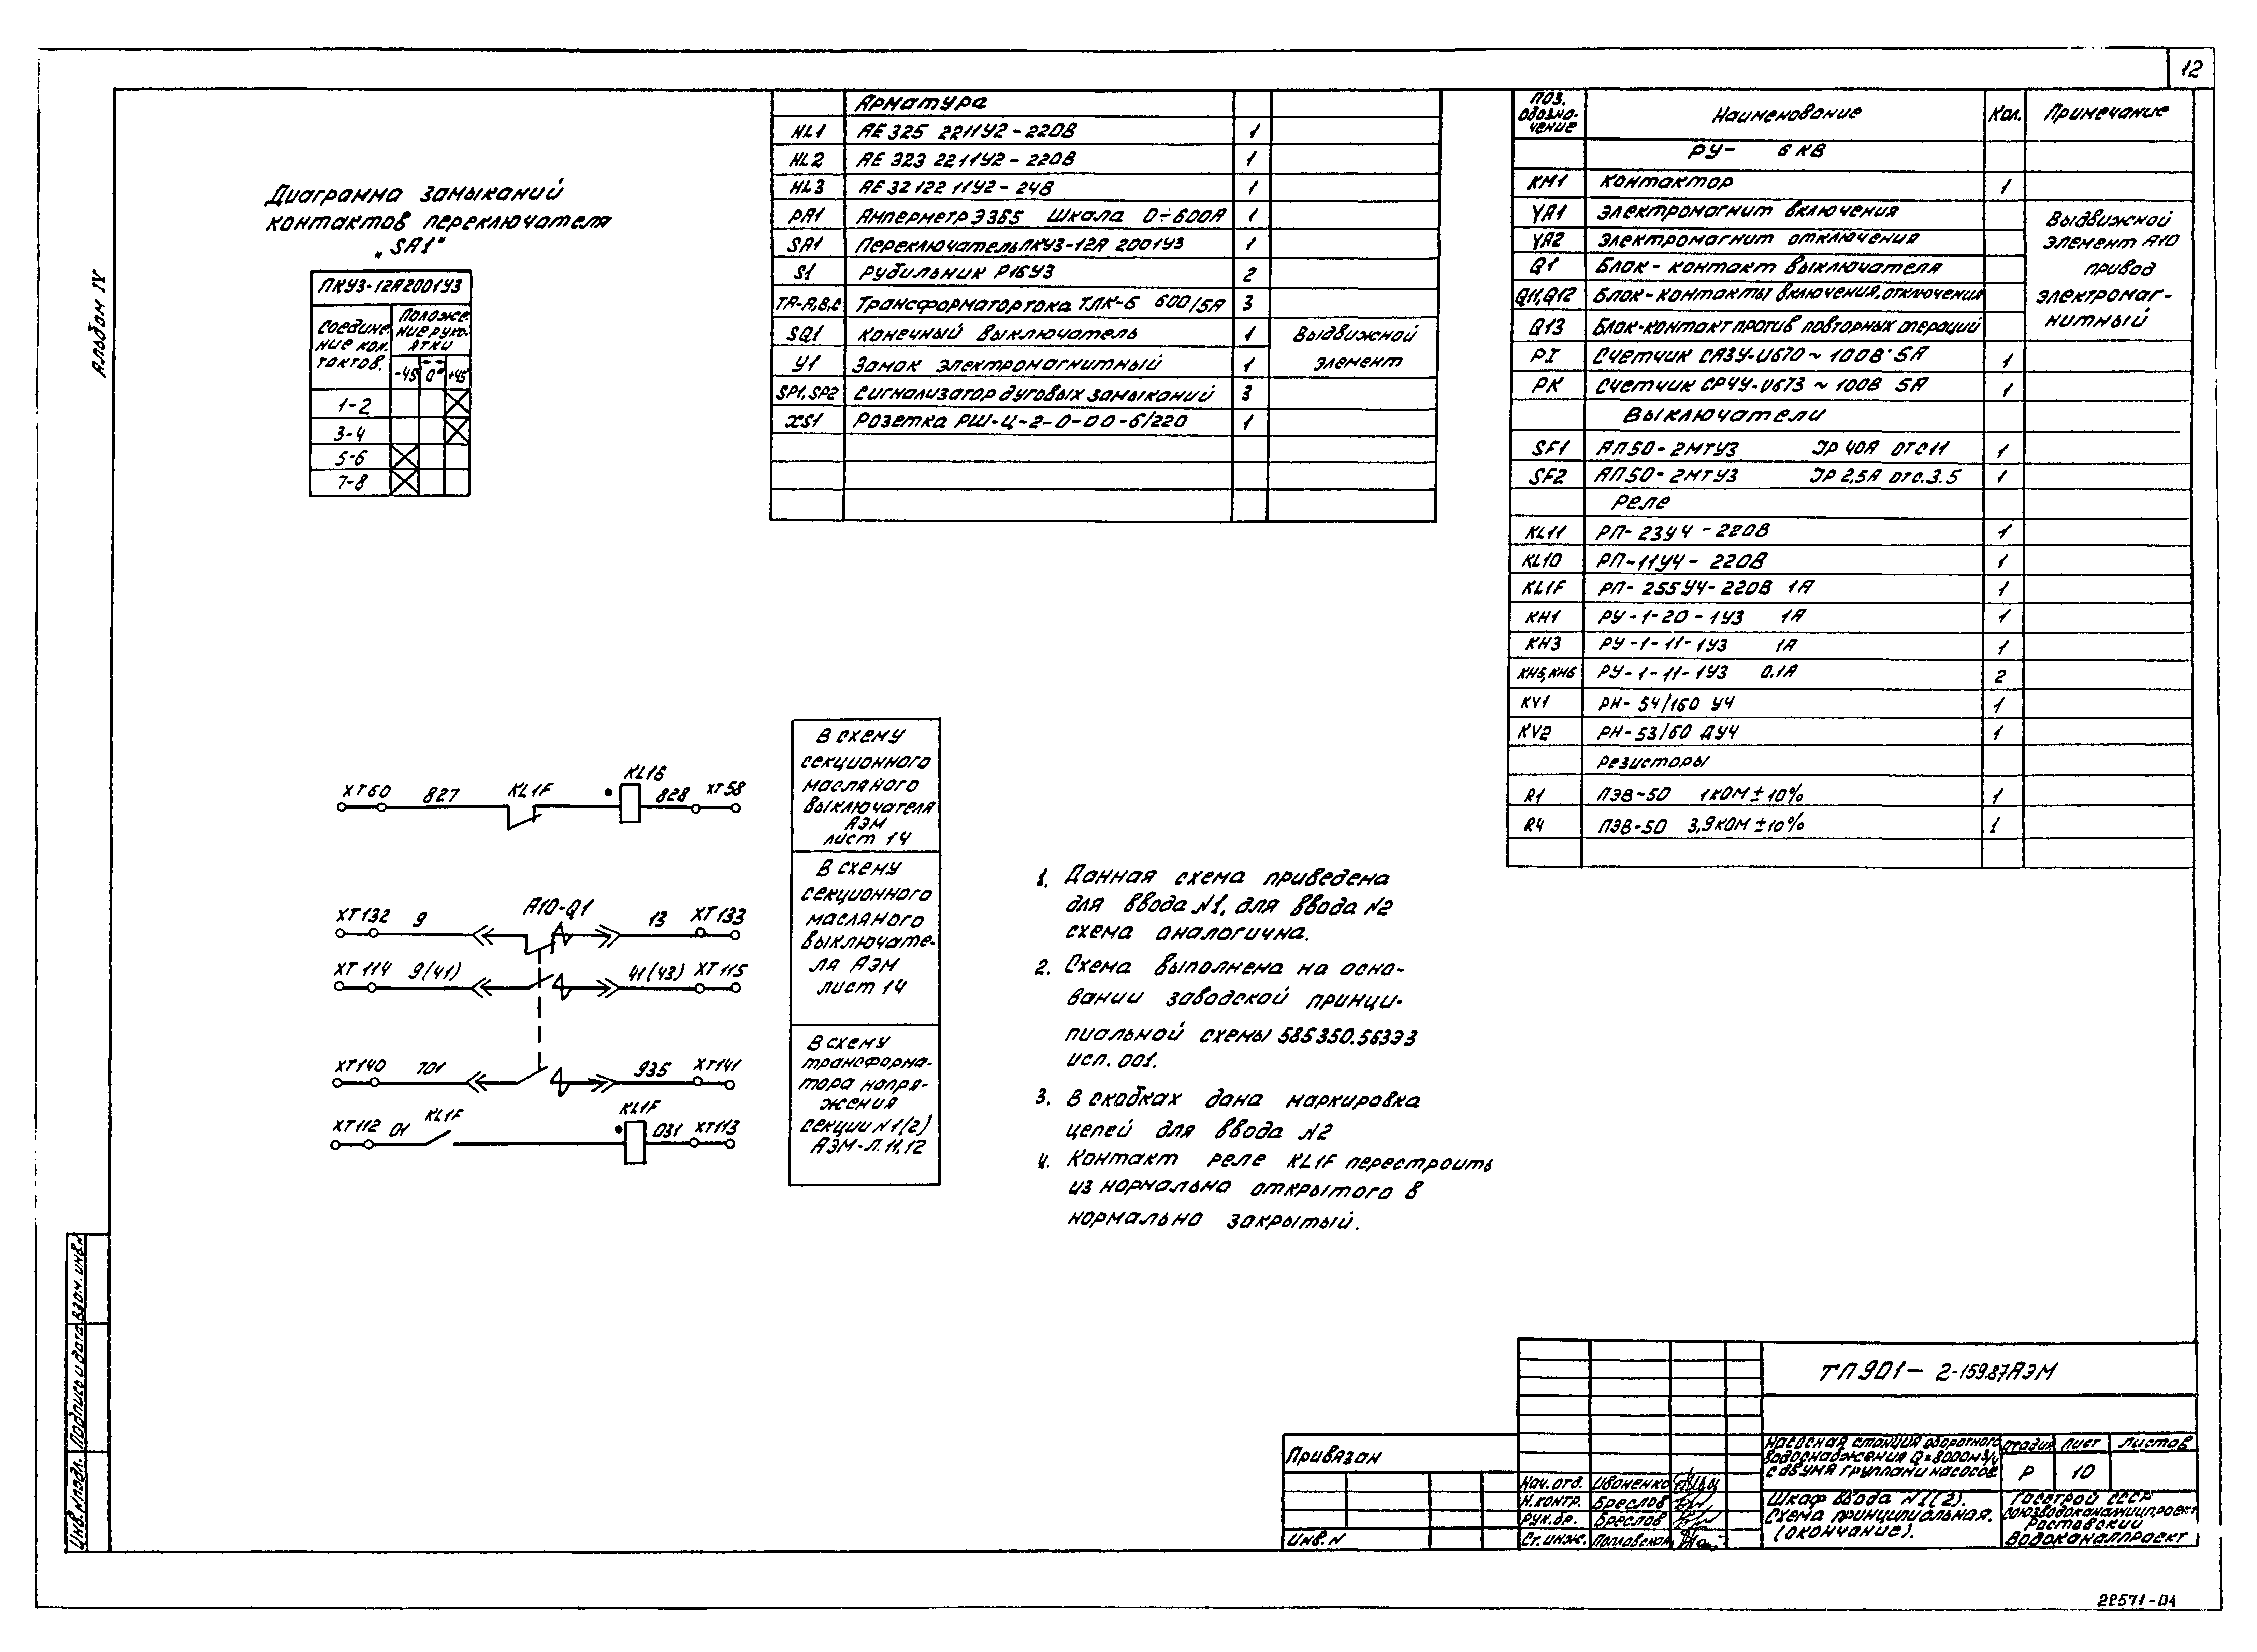 12
Альбом IV
Диаграмма замыканий
контактов переключателя
„SA1"
ПКУ3-12А2001У3
Соедине- ние кон. тактов. | Положе- ние руко- ятки
-45° | 0° | +45°
1-2
3-4
5-6
7-8
Арматура
HL1 | АЕ 325 2211У2-220В | 1
HL2 | АЕ 323 2211У2-220В | 1
HL3 | АЕ 32 122 11У2-24В | 1
PA1 | Амперметр Э365 Шкала 0÷600А | 1
SA1 | Переключатель ПКУ3-12А 2001У3 | 1
S1 | Рубильник Р16У3 | 2
ТА-А,В,С | Трансформатор тока ТЛК-6 600/5А | 3
SQ1 | Конечный выключатель | 1 | Выдвижной
У1 | Замок электромагнитный | 1 | элемент
SP1, SP2 | Сигнализатор дуговых замыканий | 3
XS1 | Розетка РШ-Ц-2-0-00-6/220 | 1
Поз. обозна- чение | Наименование | Кол. | Примечание
РУ- 6 КВ
KM1 | Контактор | 1
YA1 | Электромагнит включения | Выдвижной
YA2 | Электромагнит отключения | элемент А10
Q1 | Блок-контакт выключателя | привод
Q11,Q12 | Блок-контакты включения, отключения | электромаг-
Q13 | Блок-контакт против повторных операций | нитный
PI | Счетчик СА3У-U670 ~ 100В 5А | 1
PK | Счетчик СР4У-U673 ~ 100В 5А | 1
Выключатели
SF1 | АП50-2МТУ3 Jр 40А отс11 | 1
SF2 | АП50-2МТУ3 Jр 2,5А отс.3.5 | 1
Реле
KL11 | РП-23У4-220В | 1
KL10 | РП-11У4-220В | 1
KL1F | РП-255У4-220В 1А | 1
KH1 | РУ-1-20-1У3 1А | 1
KH3 | РУ-1-11-1У3 1А | 1
KH5,KH6 | РУ-1-11-1У3 0,1А | 2
KV1 | РН-54/160 У4 | 1
KV2 | РН-53/60 ДУ4 | 1
Резисторы
R1 | ПЭВ-50 1КОМ±10% | 1
R4 | ПЭВ-50 3,9КОМ±10% | 1
XT60 827 KL1F KL16 828 XT58
В схему
секционного
масляного
выключателя
АЭМ
лист 14
XT132 9 А10-Q1 13 XT133
XT114 9(41) 41(43) XT115
В схему
секционного
масляного
выключате-
ля АЭМ
лист 14
XT140 701 935 XT141
XT112 01 KL1F KL1F 031 XT113
В схему
трансформа-
тора напря-
жения
секции N1(2)
АЭМ-Л.11,12
1. Данная схема приведена
для ввода N1, для ввода N2
схема аналогична.
2. Схема выполнена на осно-
вании заводской принци-
пиальной схемы 585350.563Э3
исп. 001.
3. В скобках дана маркировка
цепей для ввода N2
4. Контакт реле KL1F перестроить
из нормально открытого в
нормально закрытый.
Инв. N подл. Подпись и дата Взам. инв. N
Привязан
Инв. N
Нач. отд. Иваненко
Н.контр. Бреслов
Рук.бр. Бреслов
Ст. инж.
ТП 901-2-159.87 АЭМ
Насосная станция оборотного
водоснабжения Q=8000м3/ч
с двумя группами насосов
Стадия | Лист | Листов
Р | 10
Шкаф ввода N1(2).
Схема принципиальная.
(окончание).
Госстрой СССР
Союзводоканалниипроект
Ростовский
Водоканалпроект
22571-04